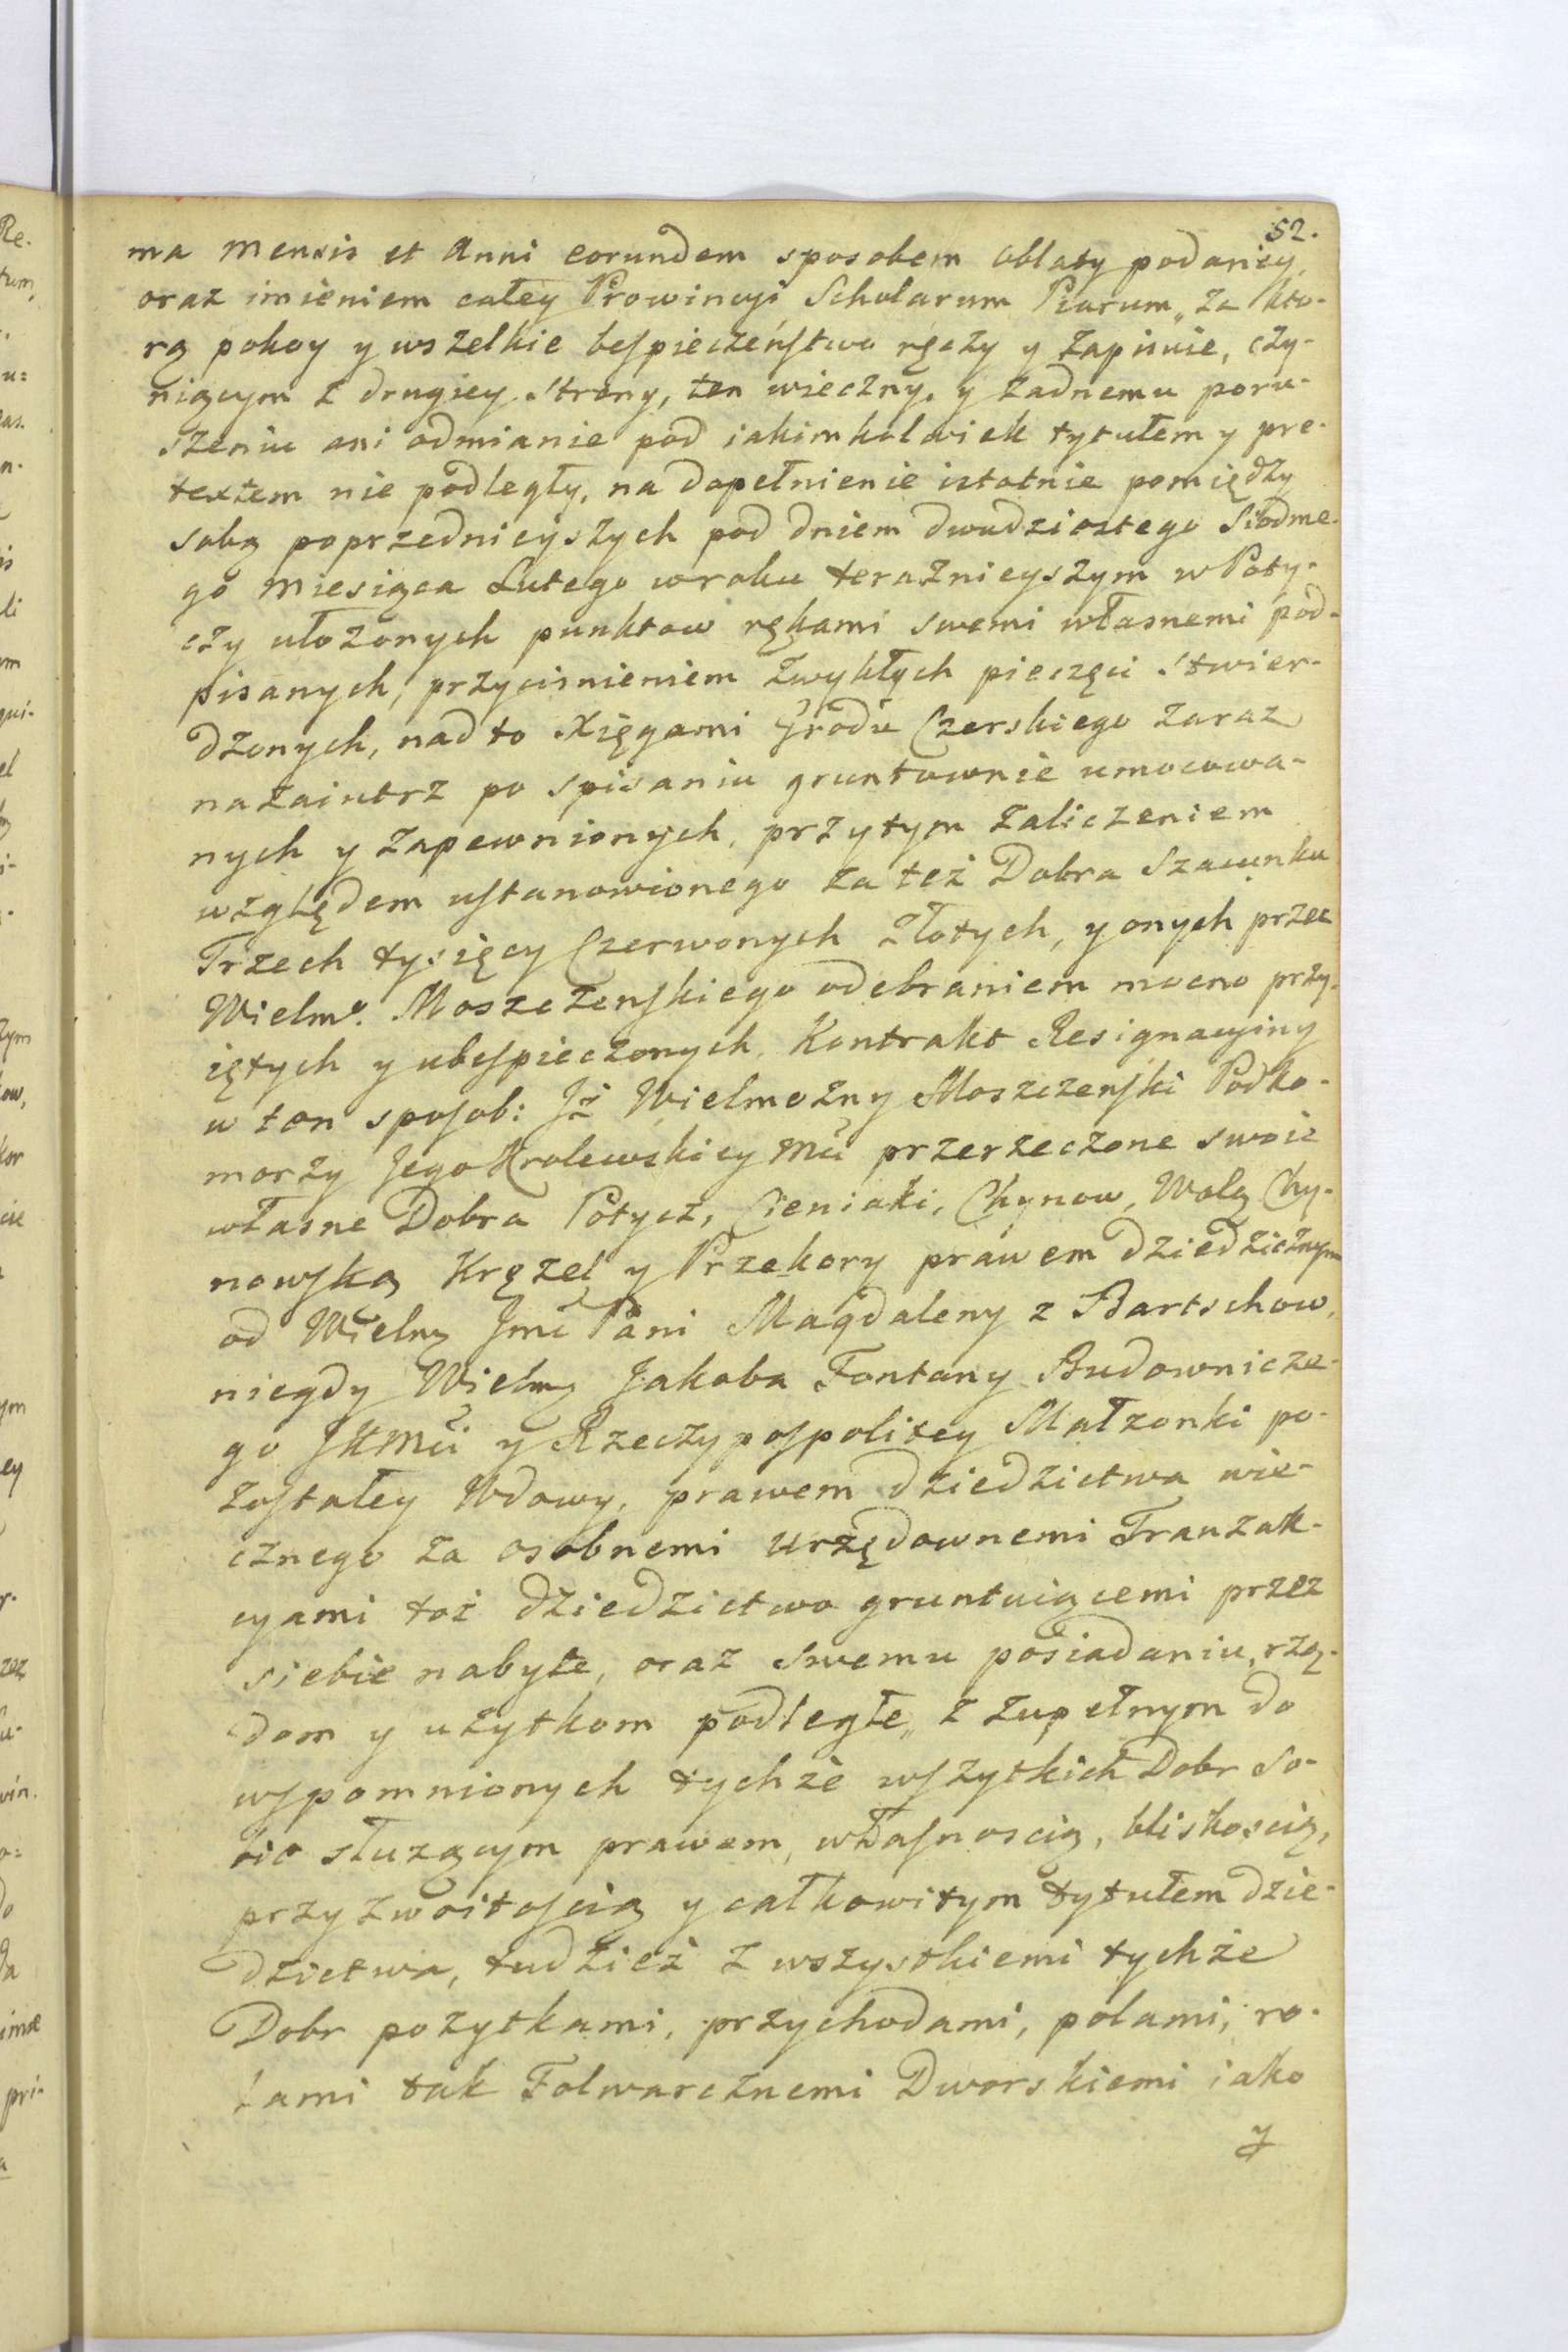 52.
ma Mensis et Anni eorundem sposobem oblaty podaney,
oraz imieniem całey Prowincyi Scholarum Piarum, za kto-
rą pokoy y wszelkie bespieczeństwo ręczy y zapisuie, czy-
niącym z drugiey Strony, ten wieczny, y żadnemu poru-
szeniu ani odmianie pod iakimkolwiek tytułem y pre-
textem nie podległy, na dopełnienie istotnie pomiędzy
sobą poprzednieyszych pod dniem dwudziestego Siodme-
go Miesiąca Lutego w roku teraznieyszym w Poty-
czy ułożonych punktow rękami swemi własnemi pod-
pisanych, przycisnieniem zwykłych pieczęci stwier-
dzonych, nad to Xięgami Grodu Czerskiego zaraz
nazaiutrz po spisaniu gruntownie umocowa-
nych y zapewnionych, przytym zaliczeniem
względem ustanowionego za też Dobra Szacunku
Trzech tysięcy Czerwonych Złotych, y onych przez
Wielmo. Moszczenskiego odebraniem mocno przy-
iętych y ubespieczonych, Kontrakt Resignacyiny
w ten sposob: Iż Wielmożny Moszczenski Podko-
morzy Jego Krolewskiey Mci przerzeczone swoie
własne Dobra Potycz, Cieniaki, Chynow, Wolą Chy-
nowską Krężel y Przekory prawem dziedzicznym
od Wielmy Jmć Pani Magdaleny z Bartschow,
niegdy Wielmy Jakoba Fontany Budownicze-
go JKMci y Rzeczypospolitey Małżonki po-
zostałey Wdowy, prawem dziedzictwa wie-
cznego za osobnemi urzędownemi Tranzak-
cyami toż dziedzictwo gruntuiącemi przez
siebie nabyte, oraz swemu posiadaniu, rzą-
dom y użytkom podległe, z zupełnym do
wspomnionych tychże wszytkich Dobr so-
bie słuzącym prawem, własnoscią, bliskoscią,
przyzwoitoscią y całkowitym tytułem dzie-
dzictwa, tudzież z wszystkiemi tychże
Dobr pożytkami, przychodami, polami, ro-
lami tak Folwarcznemi Dworskiemi iako
y